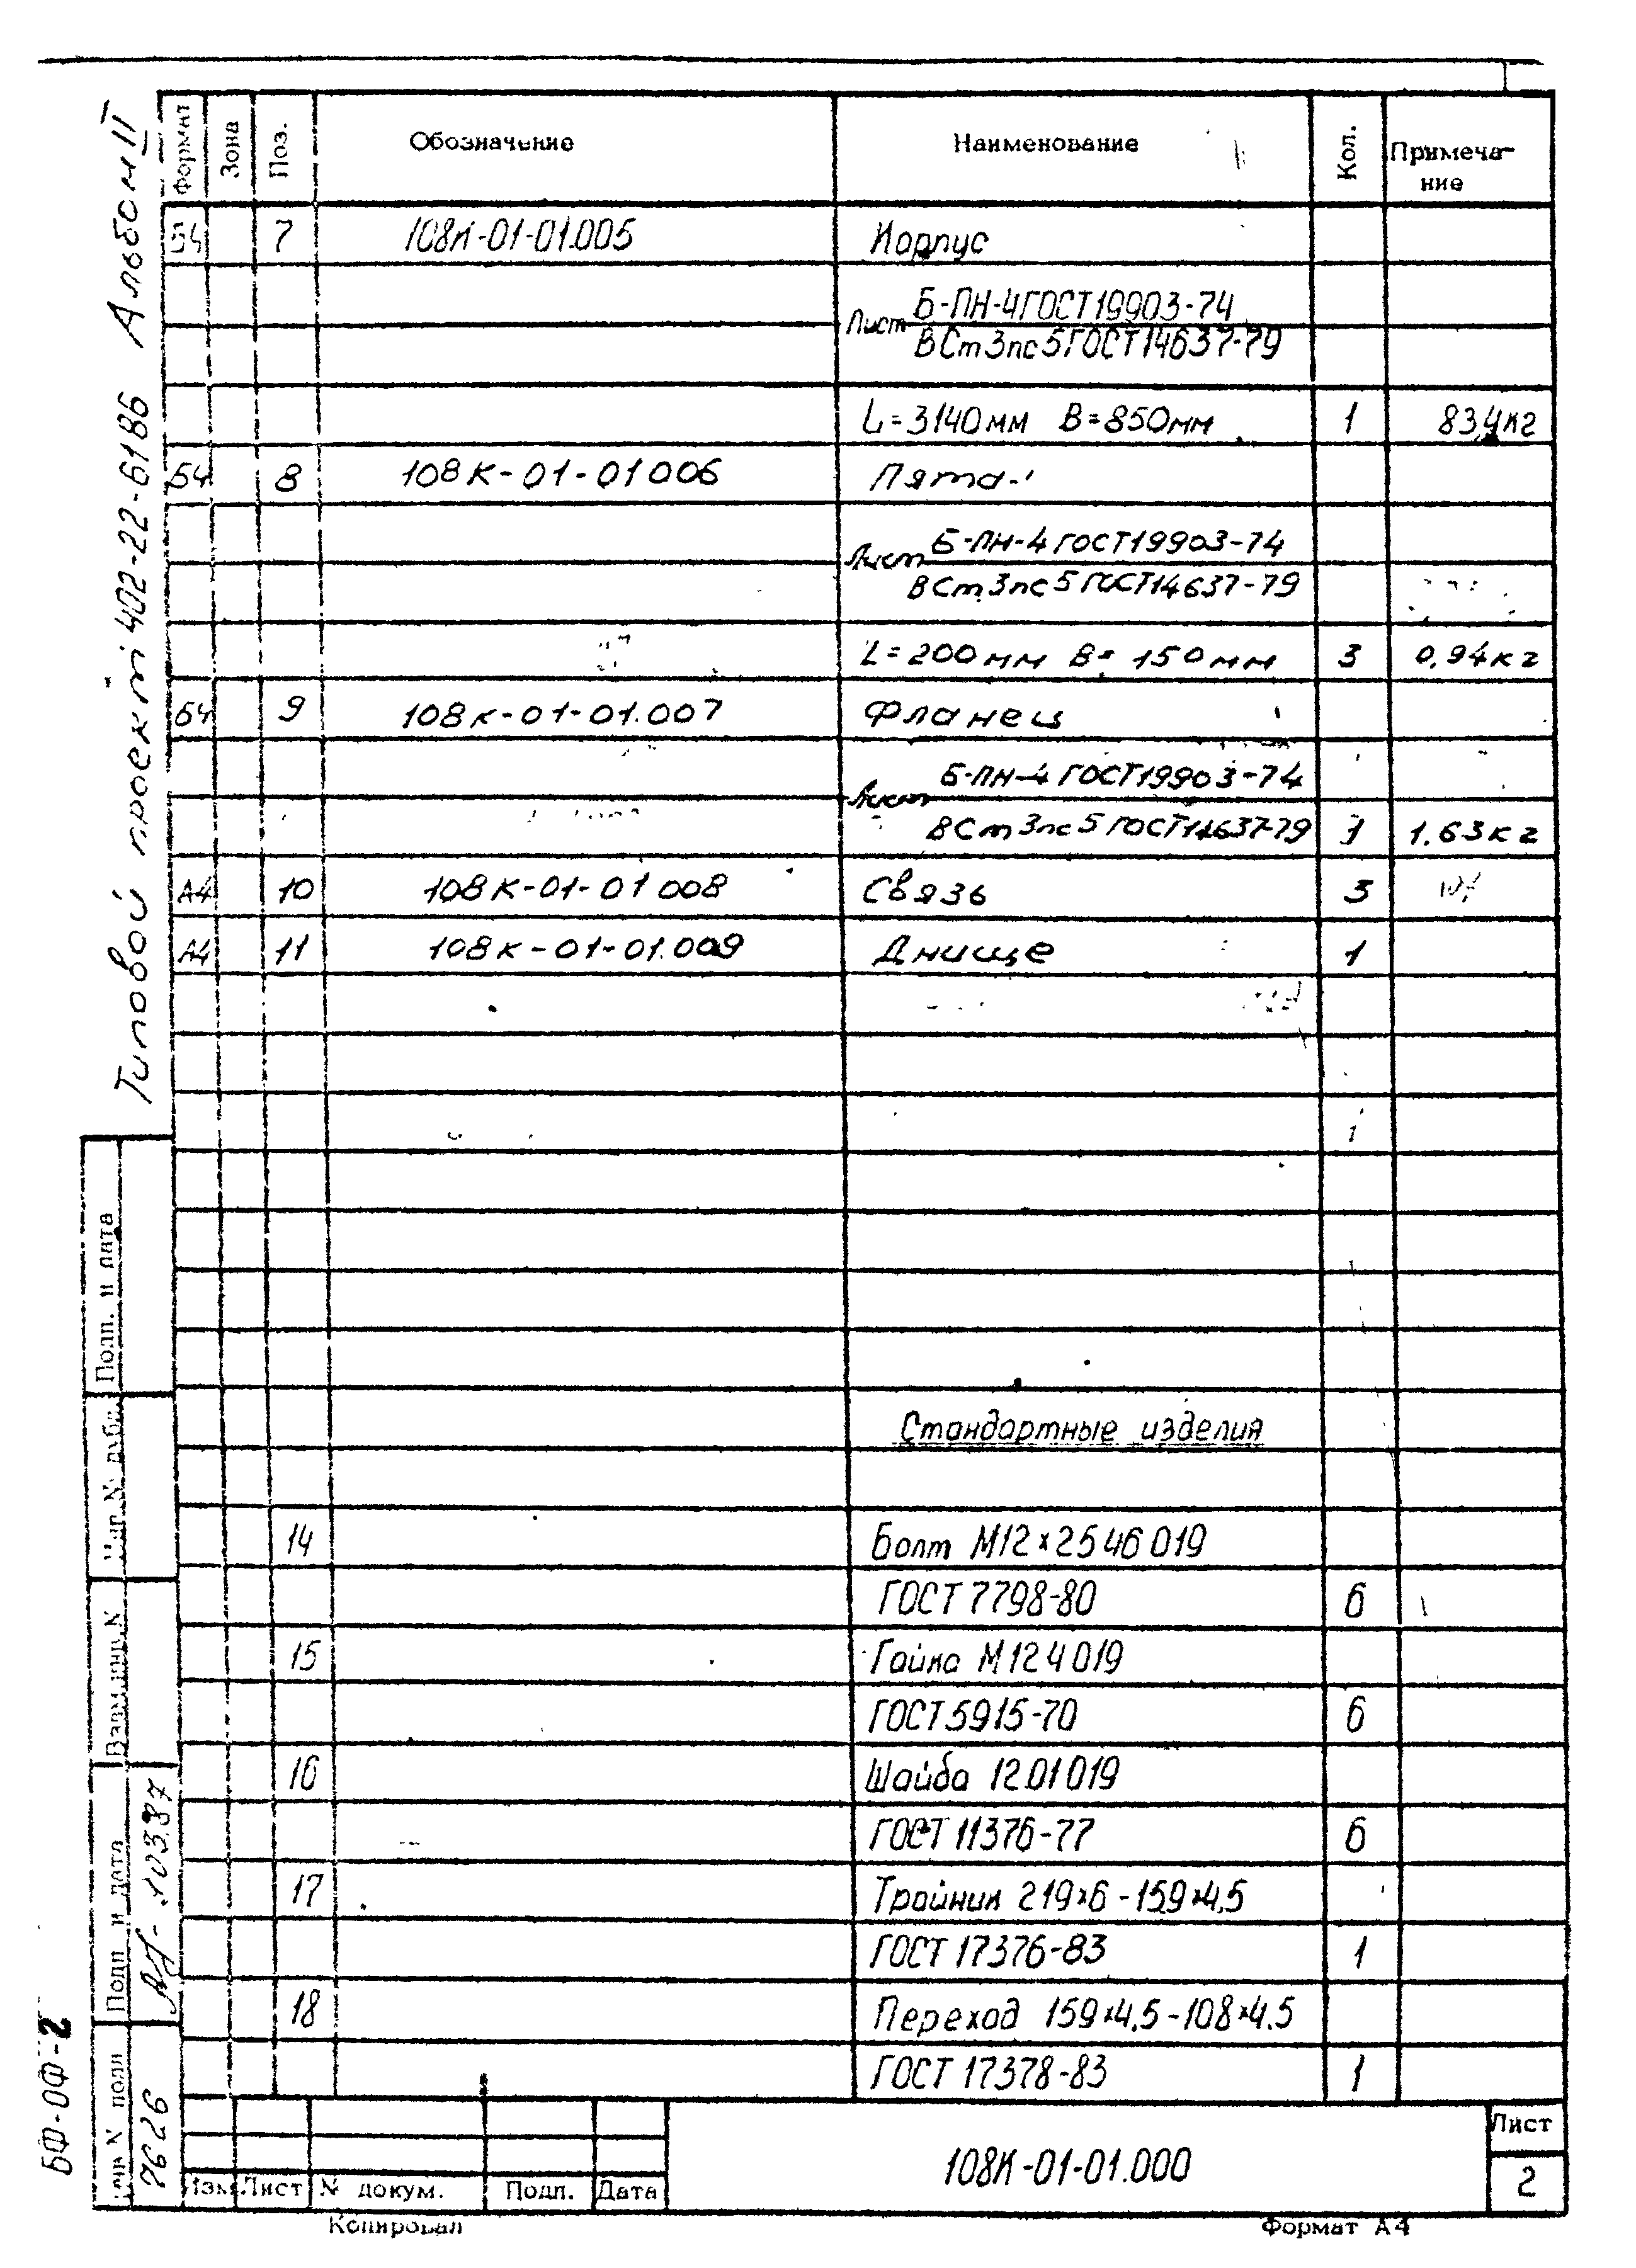 Типовой проект 402-22-61 86 Альбом II
Формат Зона Поз. Обозначение Наименование Кол. Примеча-
ние
Б4 7 108К-01-01.005 Корпус
Лист Б-ПН-4 ГОСТ 19903-74
ВСт3пс5 ГОСТ 14637-79
L=3140мм В=850мм 1 83,4кг
Б4 8 108К-01-01 006 Пята
Лист Б-ПН-4 ГОСТ 19903-74
ВСт3пс5 ГОСТ 14637-79
L=200мм В= 150мм 3 0,94кг
Б4 9 108К-01-01.007 Фланец
Лист Б-ПН-4 ГОСТ 19903-74
ВСт3пс5 ГОСТ 14637-79 1 1.63кг
А4 10 108К-01-01 008 Связь 3
А4 11 108К-01-01.009 Днище 1
Стандартные изделия
14 Болт М12×25 46 019
ГОСТ 7798-80 6
15 Гайка М12 4 019
ГОСТ 5915-70 6
16 Шайба 12 01 019
ГОСТ 11376-77 6
17 Тройник 219×6-159×4,5
ГОСТ 17376-83 1
18 Переход 159×4,5-108×4.5
ГОСТ 17378-83 1
Подп. и дата
Инв № дубл.
Взам.инв.N
Подп и дата
Инв N подл
7626
БФ-ОФ-2
Изм Лист № докум. Подп. Дата
108К-01-01.000
Лист
2
Копировал Формат А4